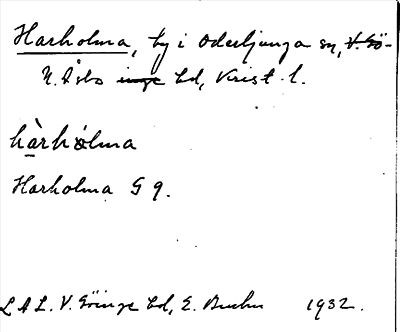 Harholma, by i Oderljunga sn, V. Gö-
N. Åsbo inge hd, Krist. l.
hàrhólma
Harholma G 9.
L A L. V. Göinge hd, E. Buchn 1932.